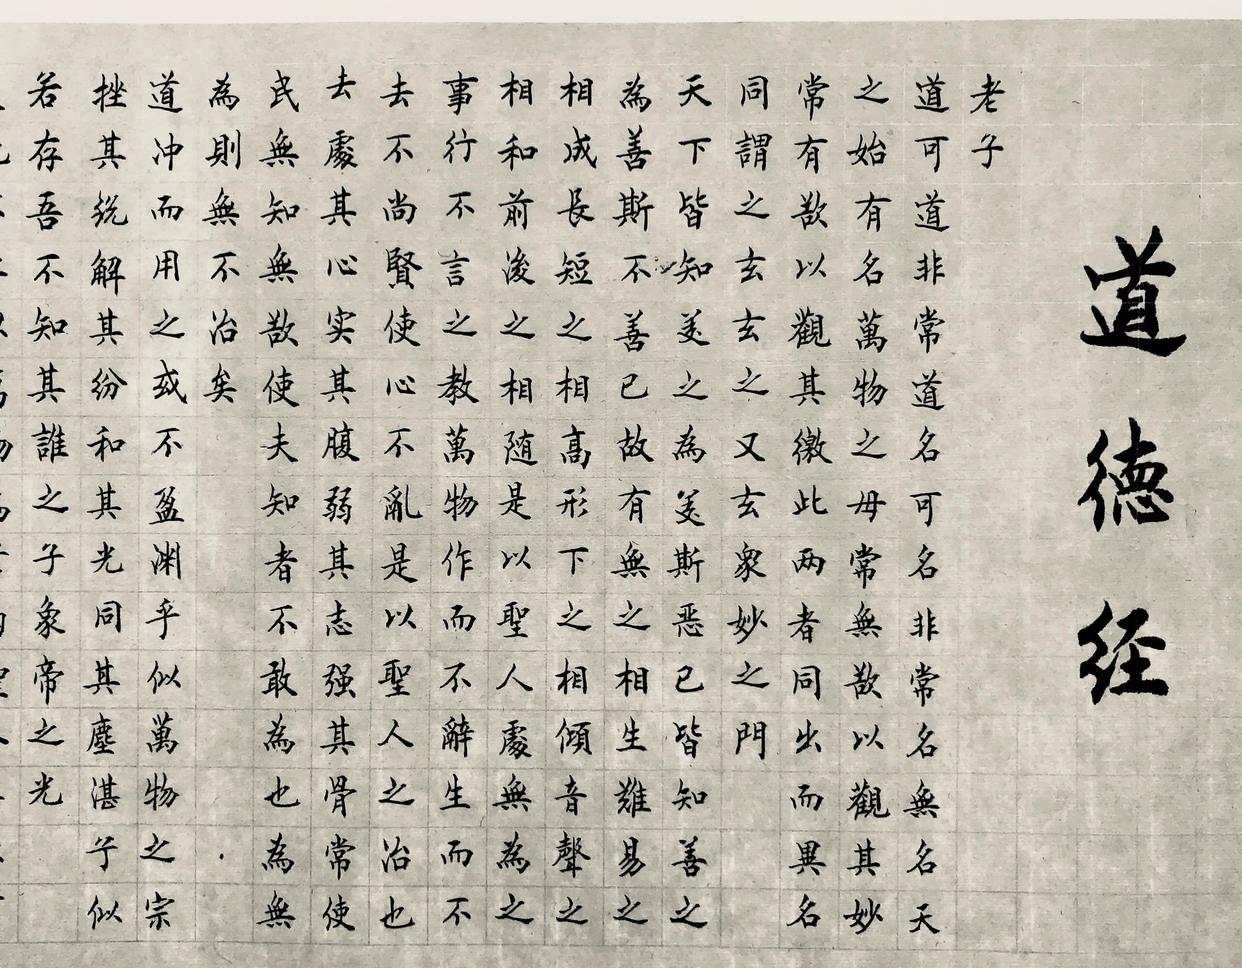 道德经
老子
道可道非常道名可名非常名無名天
之始有名萬物之母常無欲以觀其妙
常有欲以觀其徼此两者同出而異名
同謂之玄玄之又玄衆妙之門
天下皆知美之為美斯惡已皆知善之
為善斯不善已故有無之相生難易之
相成長短之相高形下之相傾音聲之
相和前後之相随是以聖人處無為之
事行不言之教萬物作而不辭生而不
去不尚賢使心不亂是以聖人之治也
去處其心实其腹弱其志强其骨常使
民無知無欲使夫知者不敢為也為無
為則無不治矣
道冲而用之或不盈渊乎似萬物之宗
挫其锐解其纷和其光同其塵湛乎似
若存吾不知其誰之子象帝之光